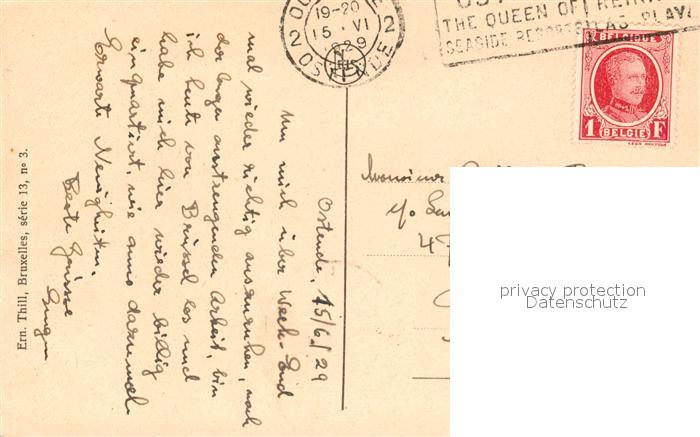 OOSTENDE 2
19-20
15 VI
1929
2 OSTENDE 2
THE QUEEN OF
SEASIDE RESORTS PLAY
BELGIQUE
1 F
BELGIE
Ostende, 15/6/29
Um mich über Week-End
mal wieder richtig auszuruhen, nach
der langen anstrengenden Arbeit, bin
ich heute von Brüssel los und
habe mich hier wieder billig
einquartiert, wie anno dazumal.
Erwarte Neuigkeiten.
Beste Grüsse
Monsieur
c/o
47
Ern. Thill, Bruxelles, série 13, n° 3.
privacy protection
Datenschutz